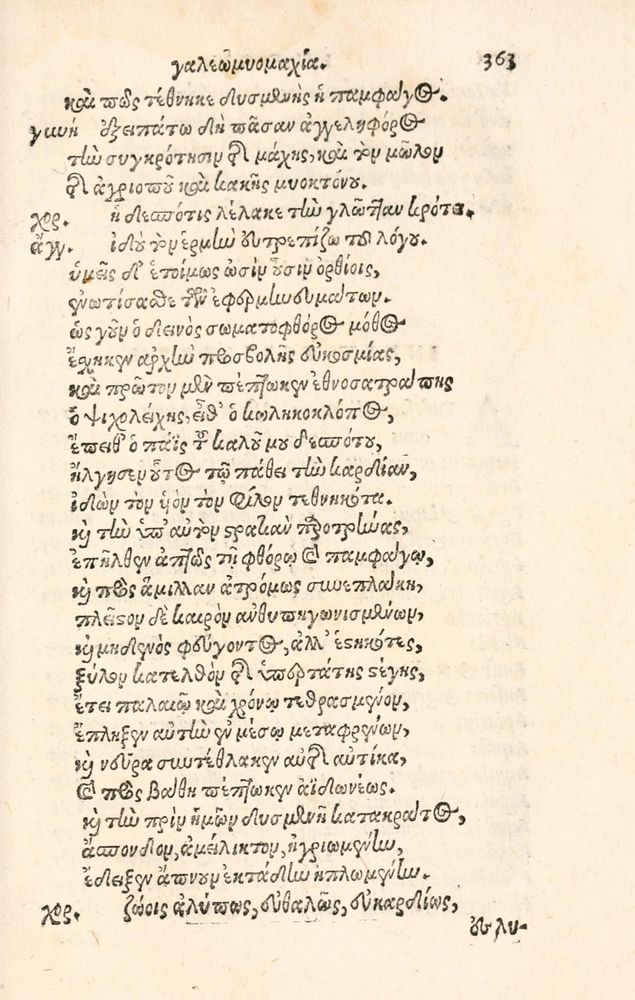 γαλεωμυομαχία. 363
καὶ πῶς τέθνηκε δυσμενὴς ἡ παμφάγος.
γυνή ἀξειπάτω δὴ πᾶσαν ἀγγεληφόρος
τὴν συγκρότησιν τῆς μάχης, καὶ τὸν μῶλον
τῆς ἀγριοποῦ καὶ κακῆς μυοκτόνου.
χορ. ἡ δεσπότις λέλακε τὴν γλῶτταν κρότει.
ἄγγ. ἰδοὺ τὸν εἱρμὸν εὐτρεπίζω τοῦ λόγου.
ὑμεῖς δ' ἑτοίμως ὠσὶν οὖσιν ὀρθίοις,
ἐνωτίσασθε τῶν ἐφερμηνευμάτων.
ὡς γοῦν ὁ δεινὸς σωματοφθόρος μόθος
ἔσχηκεν ἀρχὴν προσβολῆς εὐκοσμίας,
καὶ πρῶτον μὲν πέπτωκεν ἐθνοσατράπης
ὁ ψιχολείχης, εἶθ' ὁ κωληκοκλόπος,
ἔπειθ' ὁ παῖς τοῦ καλοῦ μου δεσπότου,
ἤλγησεν οὗτος τῷ πάθει τὴν καρδίαν,
ἰδὼν τὸν υἱὸν τὸν φίλον τεθνηκότα.
καὶ τὴν ὑπ' αὐτὸν στρατιὰν προτρέψας,
ἐπῆλθεν ἀπτῶς τῇ φθόρῳ καὶ παμφάγῳ,
καὶ πρὸς ἅμιλλαν ἀτρόμως συνεπλάκη,
πλεῖστον δὲ καιρὸν ἀνθυπηγωνισμένων,
καὶ μηδενὸς φεύγοντος, ἀλλ' ἑστηκότες,
ξύλον κατελθὸν τῆς ὑπερτάτης στέγης,
ἔτει παλαιῷ καὶ χρόνῳ τεθρασμένον,
ἔπληξεν αὐτὴν ἐν μέσῳ μεταφρένων,
καὶ νεῦρα συντέθλακεν αὐτῆς αὐτίκα,
καὶ πρὸς βάθη πέπτωκεν ἀϊδωνέως.
καὶ τὴν πρὶν ἡμῶν δυσμενῆ κατακράτος,
ἄσπονδον, ἀμείλικτον, ἠγριωμένην,
ἔδειξεν ἄπνουν ἐκτάδην ἡπλωμένην.
χορ. ζώοις ἀλύπως, εὐθαλῶς, εὐκαρδίως,
οὐ λυ-